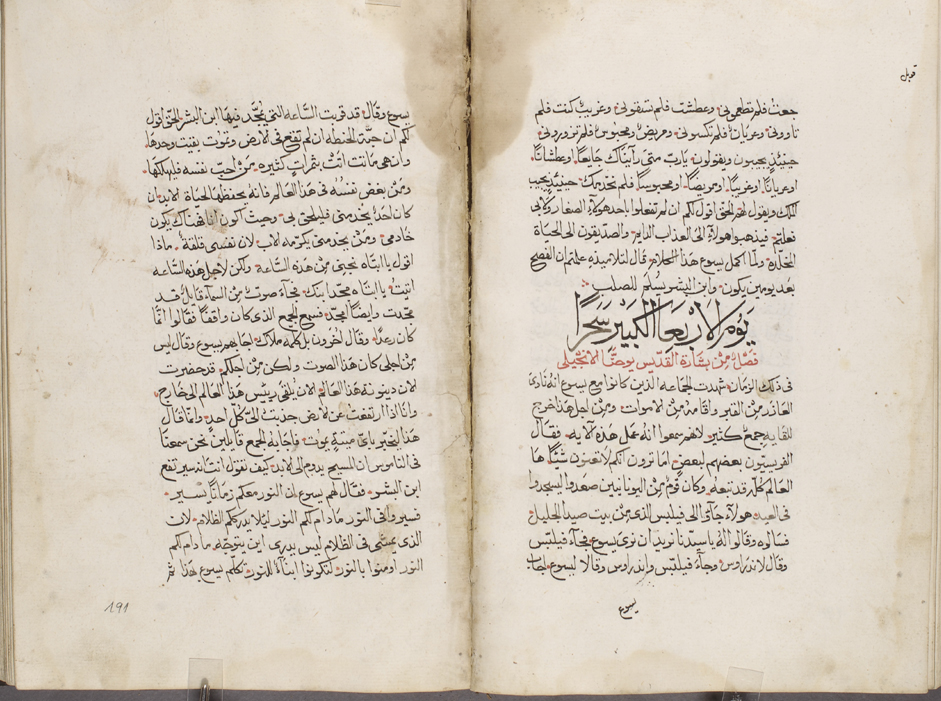 قوبل
جعت فلم تطعموني وعطشت فلم تسقوني وغريبًا كنت فلم
تاووني وعريانًا فلم تكسوني ومريضًا ومحبوسًا فلم تزوروني
حينيذٍ يجيبون ويقولون يارب متى رايناك جايعًا او عطشانًا
او عريانًا او غريبًا او مريضًا او محبوسًا فلم نخدمك حينيذٍ يجيب
الملك ويقول لهم الحق اقول لكم ان لم تفعلوا باحد هولاء الصغار ولابي
فعلتم فيذهبوا هولاء الى العذاب الدايم والصديقون الى الحياة
المخلدة ولما اكمل يسوع هذا الكلام قال لتلاميذه علمتم ان الفصح
بعد يومين يكون وابن البشر يُسلم للصلب
يوم الاربعا الكبير سحرًا
فصل من بشارة القديس يوحنا الانجيلي
في ذلك الزمان شهدت الجماعه الذين كانوا مع يسوع انه نادى
العازر من القبر واقامه من الاموات ومن اجل هذا خرج
للقايه جمع كثير لانهم سمعوا انه عمل هذه الايه فقال
الفريسيون بعضهم لبعض اما ترون انكم لا تعينون شيئًا ها
العالم كله قد تبعه وكان قوم من اليونانيين صعدوا ليسجدوا
في العيد هولاء جاءوا الى فيلبس الذي من بيت صيدا الجليل
فسالوه وقالوا له ياسيدنا نريد ان نرى يسوع فجاء فيلبس
وقال لاندراوس وجاء فيلبس واندراوس وقالا ليسوع اجاب
يسوع
يسوع وقال قد قربت الساعه التي يمجد فيها ابن البشر الحق اقول
لكم ان حبة الحنطه ان لم تقع في الارض وتموت بقيت وحدها
وان هي ماتت اتت بثمرات كثيره من احب نفسه فليهلكها
ومن بغض نفسه في هذا العالم فانه يحفظها لحياة الابد ان
كان احد يخدمني فليلحق بي وحيث اكون انا فهناك يكون
خادمي ومن يخدمني يكرمه الاب لان نفسي قلقة ماذا
اقول يا ابتاه نجيني من هذه الساعة ولكن لاجل هذه الساعه
اتيت يا ابتاه مجد ابنك فجاء صوت من السماء قايل قد
مجدت وايضًا امجد فسمع الجمع الذي كان واقفًا فقالوا انما
كان رعدًا وقال اخرون بل كلمه ملاك اجابهم يسوع وقال ليس
من اجلي كان هذا الصوت ولكن من اجلكم قد حضرت
الان دينونة هذا العالم الان يلقى رييس هذا العالم الى خارج
وانا اذا ارتفعت عن الارض جذبت الي كل احد وانما قال
هذا ليخبر باي ميتة يموت فاجابه الجمع قايلين نحن سمعنا
في الناموس ان المسيح يدوم الى الابد كيف تقول انت انه سيرتفع
ابن البشر فقال لهم يسوع ان النور معكم زمانًا يسير
فسيروا في النور مادام لكم النور ليلا يدرككم الظلام لان
الذي يمشي في الظلام ليس يدري اين يتوجه مادام لكم
النور اومنوا بالنور لتكونوا ابناء للنور تكلم يسوع هذا ثم
191